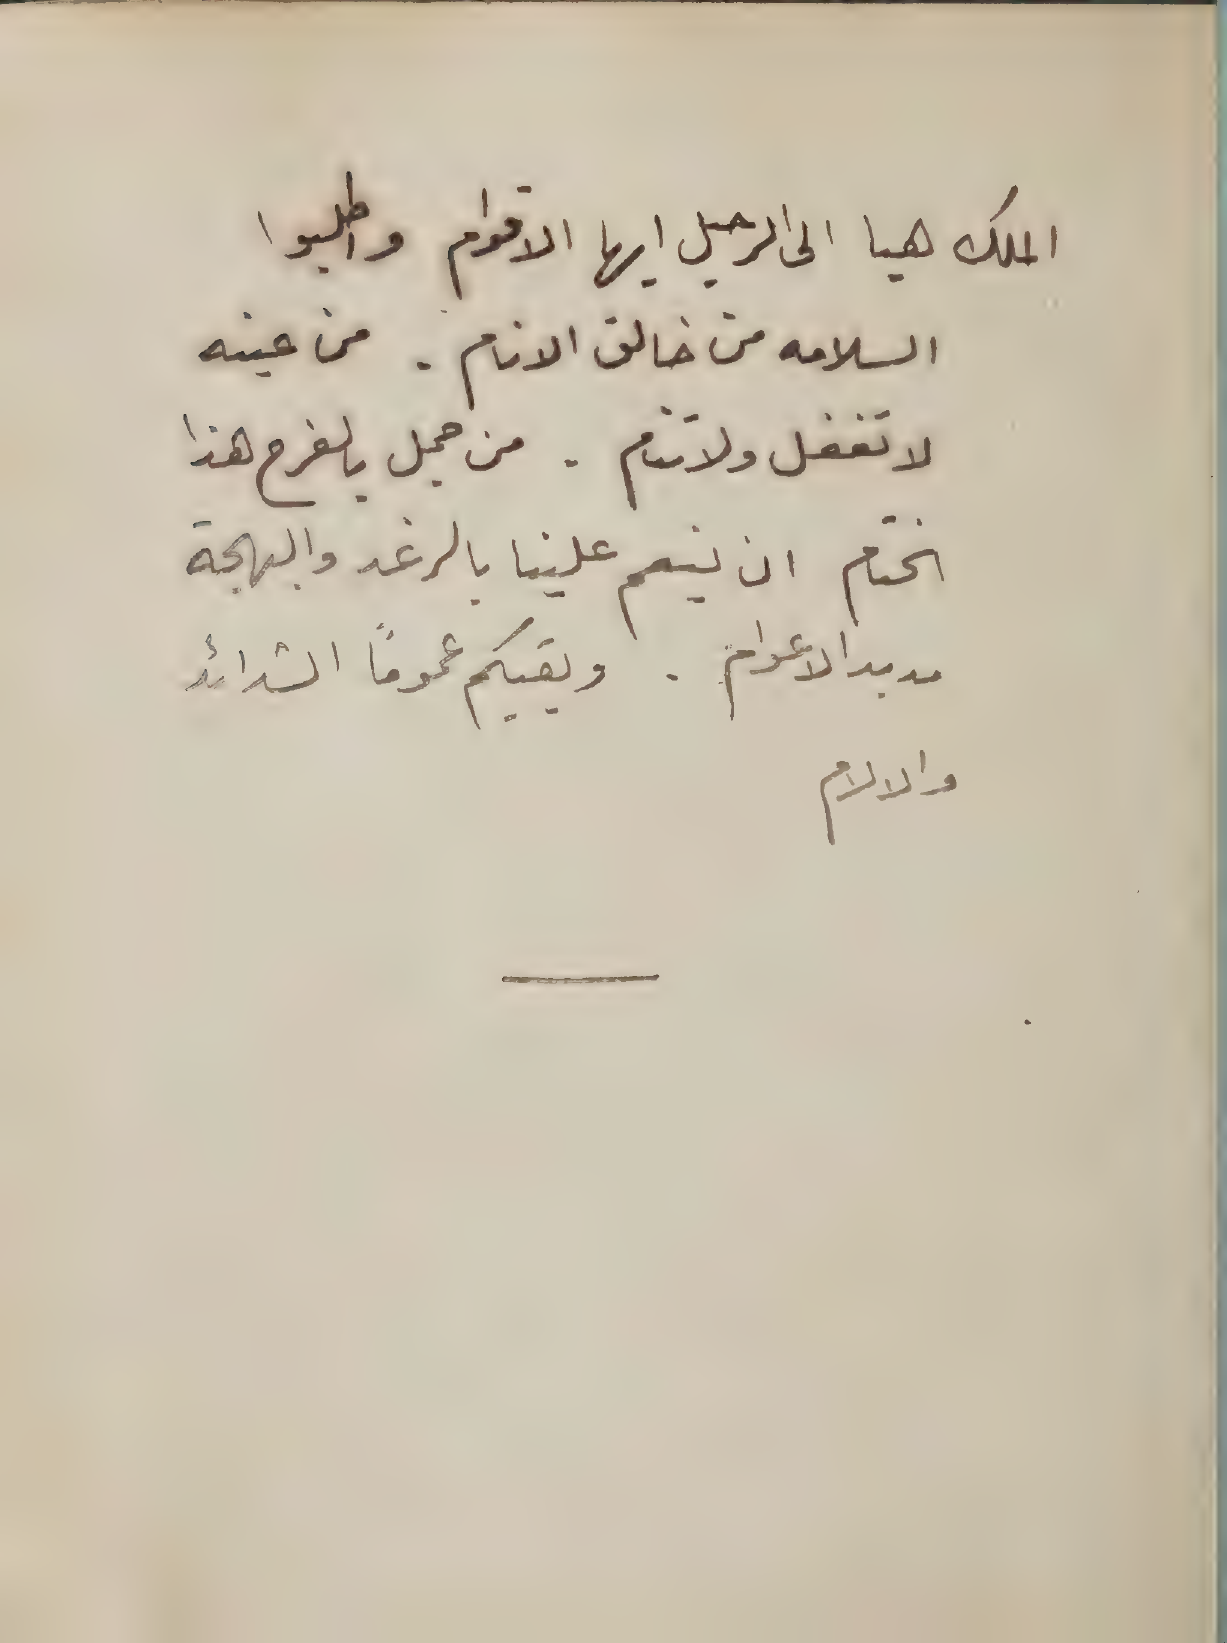 الملك هيا الى الرحيل ايها الاقوام واطلبوا
السلامه من خالق الانام . من عينه
لا تغفل ولا تنام . من جمل بالفرح هذا
الختام ان ينعم علينا بالرغد والبهجة
مديد الاعوام . ويقيكم عموماً الشدائد
والالام